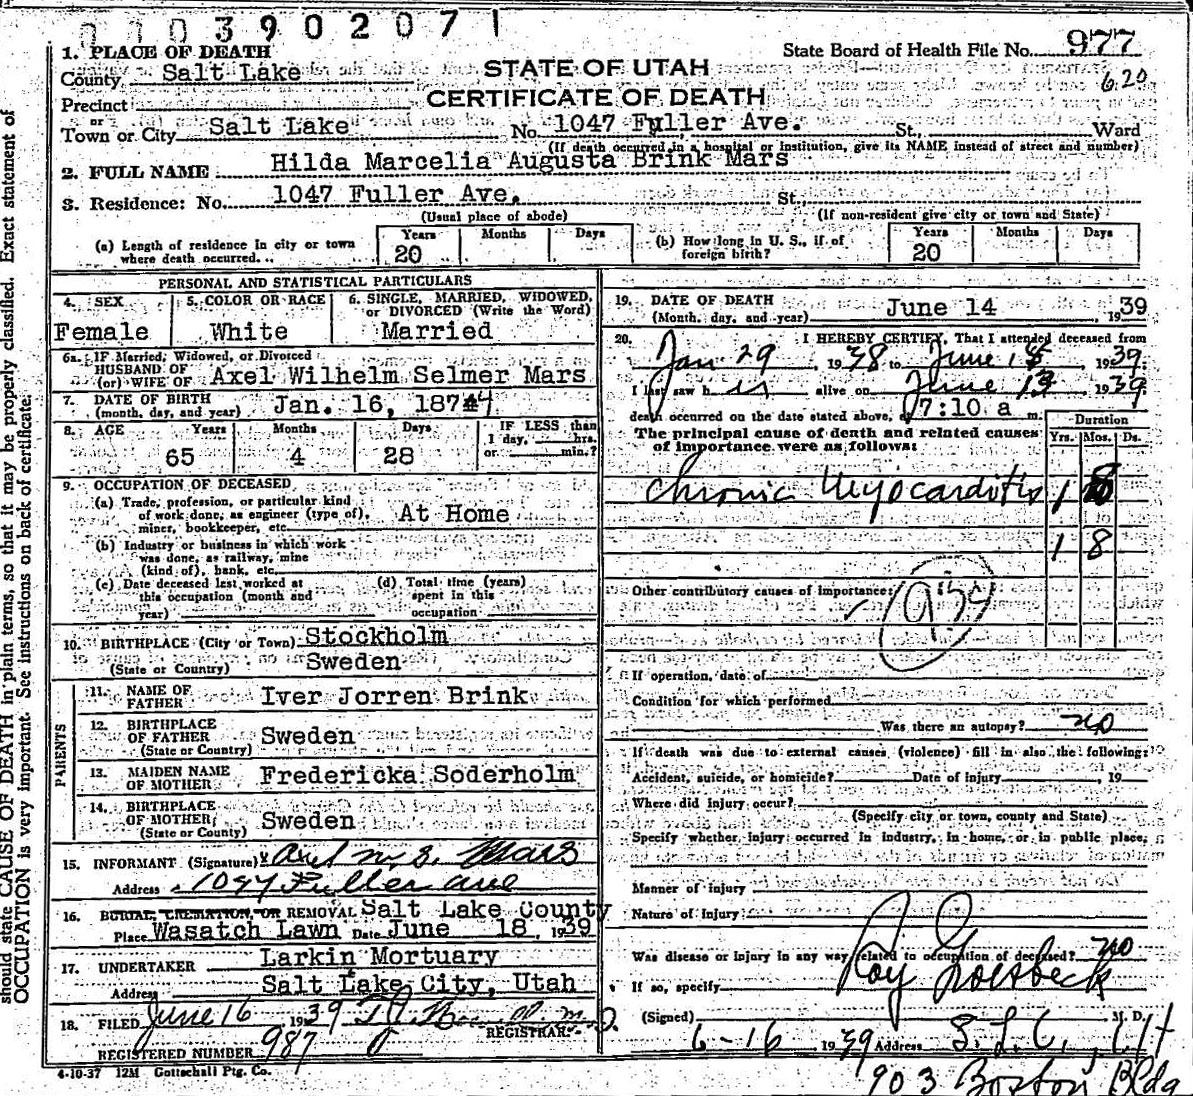 0103902071
1. PLACE OF DEATH
State Board of Health File No. 977
County Salt Lake
STATE OF UTAH
620
Precinct
CERTIFICATE OF DEATH
or
Town or City Salt Lake No. 1047 Fuller Ave. St., Ward
(If death occurred in a hospital or institution, give its NAME instead of street and number)
2. FULL NAME Hilda Marcelia Augusta Brink Mars
3. Residence: No. 1047 Fuller Ave. St.,
(Usual place of abode) (If non-resident give city or town and State)
(a) Length of residence in city or town where death occurred... Years 20 Months Days
(b) How long in U. S., if of foreign birth? Years 20 Months Days
PERSONAL AND STATISTICAL PARTICULARS
4. SEX Female
5. COLOR OR RACE White
6. SINGLE, MARRIED, WIDOWED, or DIVORCED (Write the Word) Married
6a. IF Married, Widowed, or Divorced
HUSBAND OF
(or) WIFE OF Axel Wilhelm Selmer Mars
7. DATE OF BIRTH
(month, day, and year) Jan. 16, 1874
8. AGE Years 65 Months 4 Days 28 IF LESS than 1 day, hrs. or min.?
9. OCCUPATION OF DECEASED
(a) Trade, profession, or particular kind
of work done, as engineer (type of), At Home
miner, bookkeeper, etc.
(b) Industry or business in which work
was done, as railway, mine
(kind of), bank, etc.
(c) Date deceased last worked at
this occupation (month and
year)
(d) Total time (years)
spent in this
occupation
10. BIRTHPLACE (City or Town) Stockholm
(State or Country) Sweden
PARENTS
11. NAME OF FATHER Iver Jorren Brink
12. BIRTHPLACE OF FATHER Sweden
(State or Country)
13. MAIDEN NAME OF MOTHER Fredericka Soderholm
14. BIRTHPLACE OF MOTHER Sweden
(State or County)
15. INFORMANT (Signature) Axel W. S. Mars
Address 1047 Fuller Ave
16. BURIAL, CREMATION, OR REMOVAL Salt Lake County
Place Wasatch Lawn Date June 18, 1939
17. UNDERTAKER Larkin Mortuary
Address Salt Lake City, Utah
18. FILED June 16 1939 M.D.
REGISTRAR
REGISTERED NUMBER 987
4-10-37 12M Gottschall Ptg. Co.
19. DATE OF DEATH
(Month, day, and year) June 14 1939
20. I HEREBY CERTIFY, That I attended deceased from
Jan 29, 1938 to June 1939.
I last saw her alive on June 13 1939.
death occurred on the date stated above, at 7:10 a m.
The principal cause of death and related causes
of importance were as follows:
Duration
Yrs. Mos. Ds.
Chronic Myocarditis 1 8
1 8
Other contributory causes of importance:
If operation, date of
Condition for which performed
Was there an autopsy? no
If death was due to external causes (violence) fill in also the following:
Accident, suicide, or homicide? Date of injury , 19
Where did injury occur?
(Specify city or town, county and State)
Specify whether injury occurred in industry, in home, or in public place,
Manner of injury
Nature of injury
Was disease or injury in any way related to occupation of deceased? no
If so, specify
(Signed) Roy Groesbeck M. D.
6-16 1939 Address S. L. C., Ut
903 Boston Bldg
should state CAUSE OF DEATH in plain terms, so that it may be properly classified. Exact statement of
OCCUPATION is very important. See instructions on back of certificate.